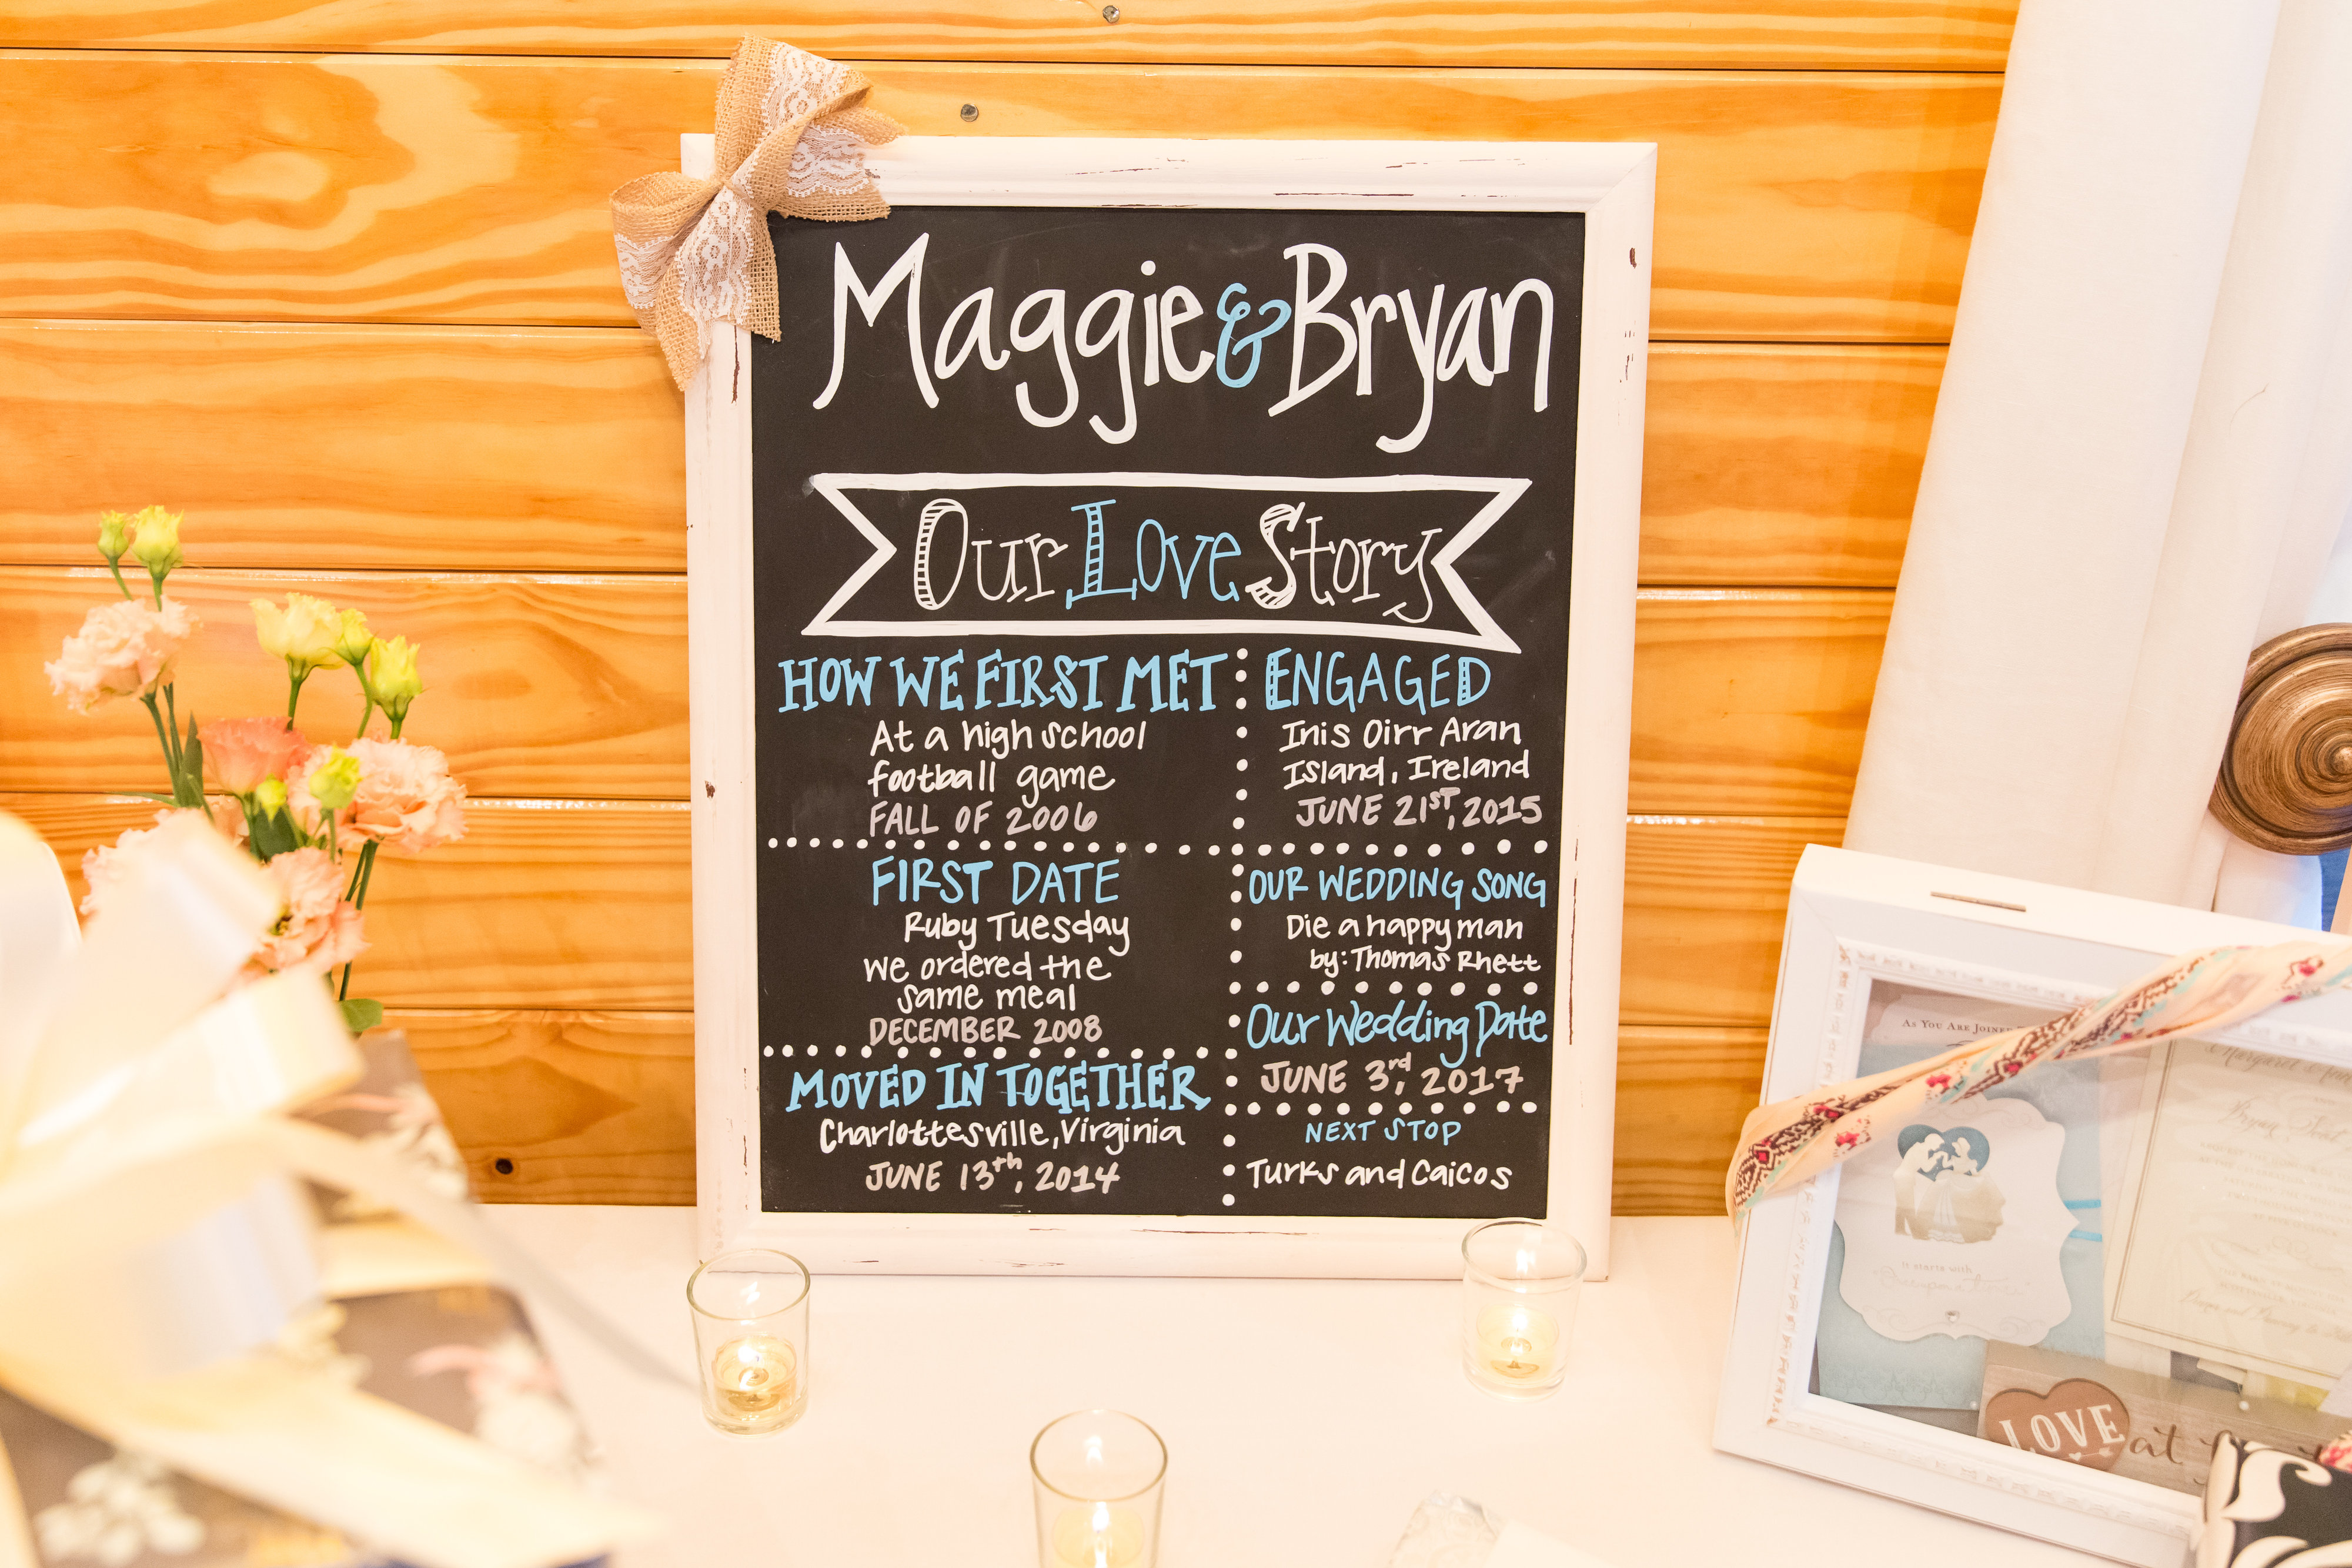 Maggie & Bryan
Our Love Story
HOW WE FIRST MET
At a high school
football game
FALL OF 2006
FIRST DATE
Ruby Tuesday
We ordered the
same meal
DECEMBER 2008
MOVED IN TOGETHER
Charlottesville, Virginia
JUNE 13th, 2014
ENGAGED
Inis Oirr Aran
Island, Ireland
JUNE 21ST, 2015
OUR WEDDING SONG
Die a happy man
by: Thomas Rhett
Our Wedding Date
JUNE 3rd, 2017
NEXT STOP
Turks and Caicos
AS YOU ARE JOINED
it starts with
LOVE at